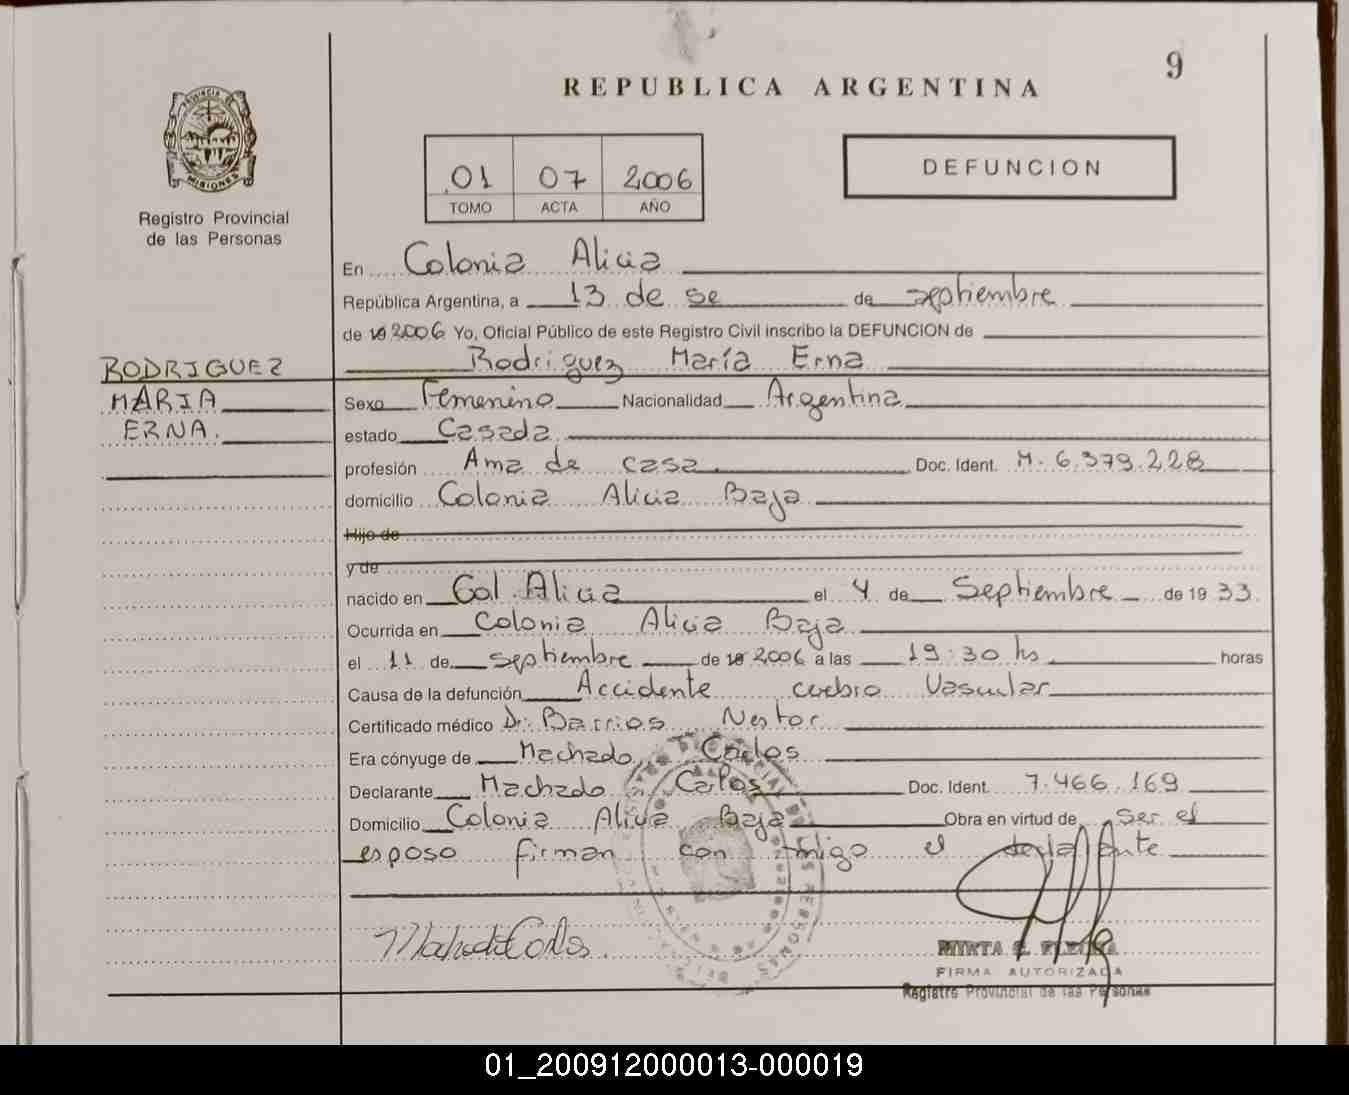 9
REPUBLICA ARGENTINA
PROVINCIA DE
MISIONES
Registro Provincial
de las Personas
01 07 2006
TOMO ACTA AÑO
DEFUNCION
En Colonia Alicia
República Argentina, a 13 de se de septiembre
de 19 2006 Yo, Oficial Público de este Registro Civil inscribo la DEFUNCION de
Rodriguez María Erna
RODRIGUEZ
MARIA
ERNA.
Sexo Femenino Nacionalidad Argentina
estado Casada
profesión Ama de casa Doc. Ident. M. 6.379.228
domicilio Colonia Alicia Baja
Hijo de
y de
nacido en Col. Alicia el 4 de Septiembre de 19 33
Ocurrida en Colonia Alicia Baja
el 11 de septiembre de 19 2006 a las 19:30 hs horas
Causa de la defunción Accidente cerebro Vascular
Certificado médico Dr. Barrios Nestor
Era cónyuge de Machado Carlos
Declarante Machado Carlos Doc. Ident. 7.466.169
Domicilio Colonia Alicia Baja Obra en virtud de Ser el
esposo firman con migo el declarante
Machado Carlos
MIRTA
FIRMA AUTORIZADA
Registro Provincial de las Personas
01_200912000013-000019